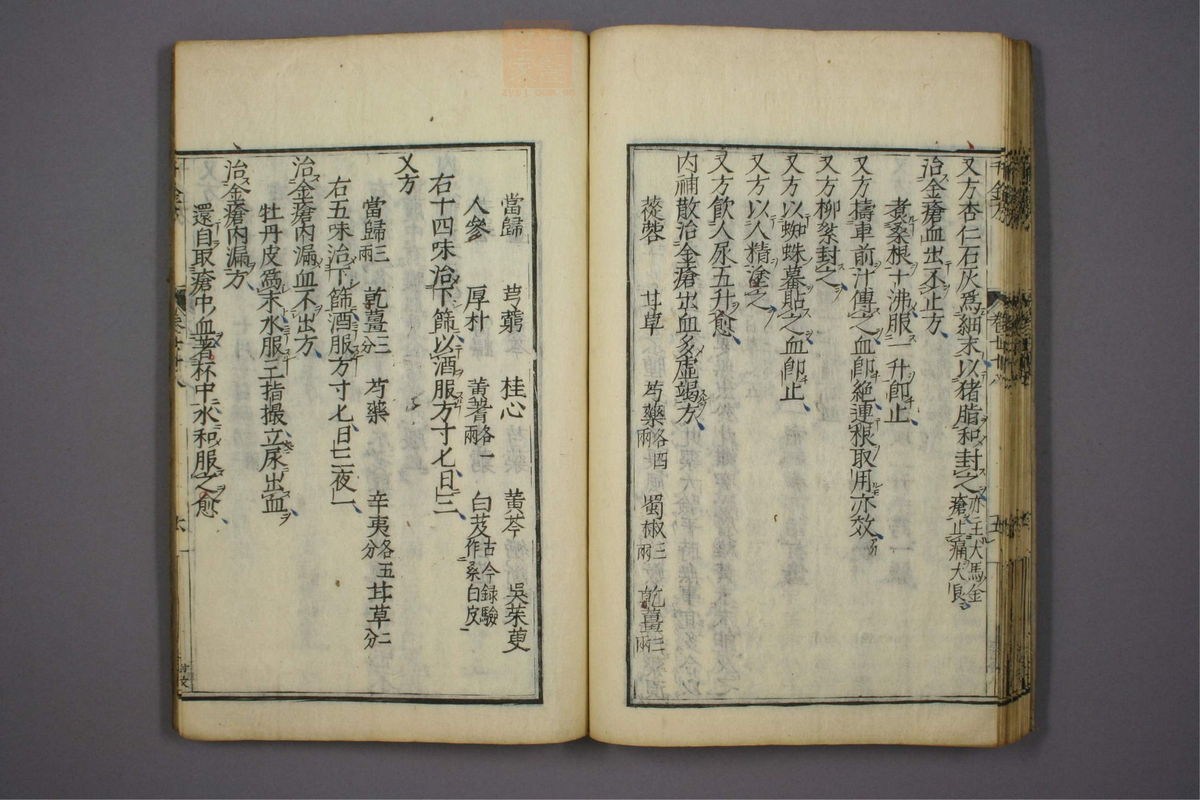 又方杏仁石灰為細末以猪脂和封之亦主犬馬金瘡止痛大良
治金瘡血出不止方
煮桑根十沸服一升即止
又方擣車前汁傅之血即絶連根取用亦效
又方柳絮封之
又方以蜘蛛幕貼之血即止
又方以人精塗之
又方飲人尿五升愈
内補散治金瘡出血多虚竭方
蓯蓉 甘草 芍藥各四兩 蜀椒三兩 乾薑三兩
當歸 芎藭 桂心 黄芩 呉茱萸
人參 厚朴 黄蓍各一兩 白芨古今録驗作桑白皮
右十四味治下篩以酒服方寸匕日三
又方
當歸三兩 乾薑三分 芍藥 辛夷各五分 甘草二分
右五味治下篩酒服方寸匕日三夜一
治金瘡内漏血不出方
牡丹皮為末水服三指撮立尿出血
治金瘡内漏方
還自取瘡中血著杯中水和服之愈